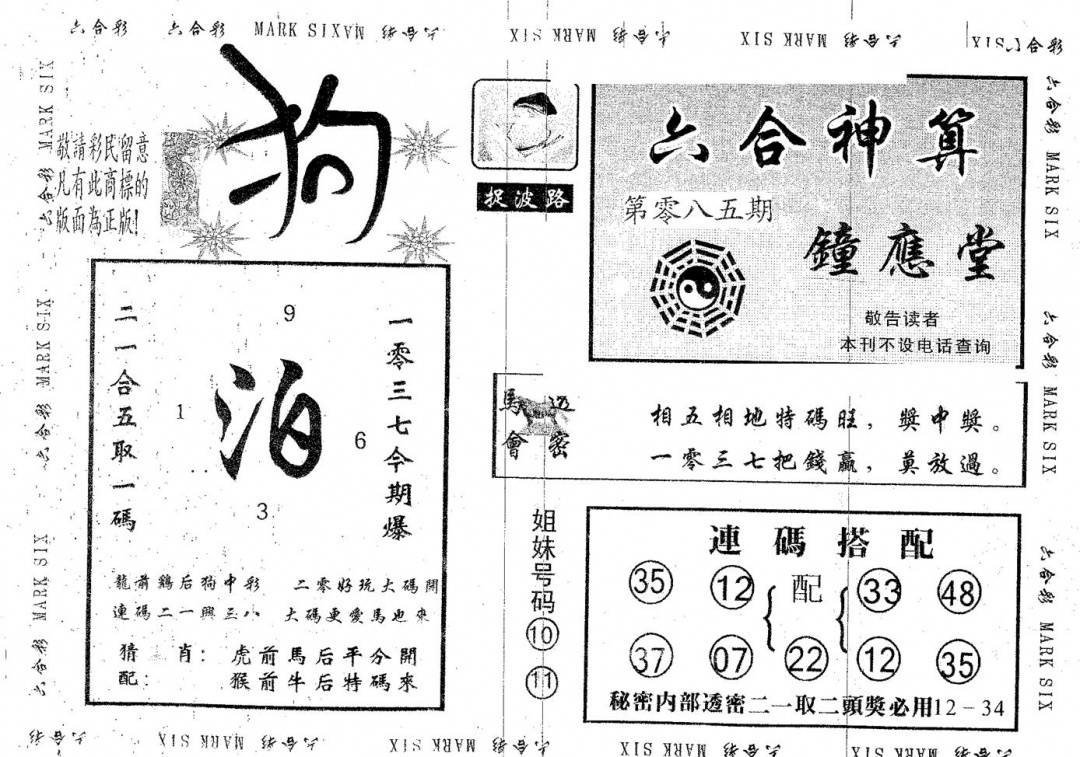 六合彩 六合彩 MARK SIX MARK SIX 六合彩 MARK SIX 六合彩 MARK SIX 六合彩
狗
敬請彩民留意
凡有此商標的
版面為正版!
捉波路
六合神算
第零八五期
鐘應堂
敬告读者
本刊不设电话查询
二一合五取一碼
9
1
泊
6
3
一零三七今期爆
龍前鷄后狗中彩 二零好玩大碼開
連碼二一興三八 大碼更愛馬也來
猜 肖: 虎前馬后平分開
配: 猴前牛后特碼來
馬會
透密
相五相地特碼旺,獎中獎。
一零三七把錢贏,莫放過。
姐妹号码
10
11
連碼搭配
35 12 配 33 48
37 07 22 12 35
秘密内部透密二一取二頭獎必用12-34
六合彩 MARK SIX 六合彩 MARK SIX 六合彩 MARK SIX
六合彩 MARK SIX 六合彩 MARK SIX 六合彩 MARK SIX
六合彩 MARK SIX 六合彩 MARK SIX 六合彩 MARK SIX 六合彩 MARK SIX 六合彩